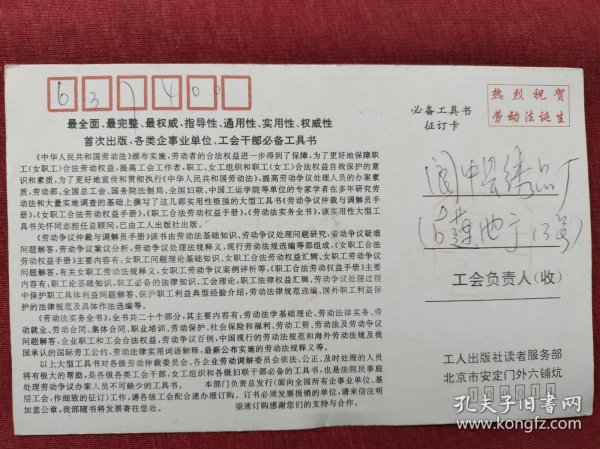 637400
热烈祝贺
劳动法诞生
必备工具书
征订卡
最全面、最完整、最权威，指导性、通用性、实用性、权威性
首次出版，各类企事业单位、工会干部必备工具书
《中华人民共和国劳动法》颁布实施，劳动者的合法权益进一步得到了保障，为了更好地保障职
工(女职工)合法劳动权益，提高工会工作者，职工、女工组织和职工(女工)合法权益自我保护的意
识和素质，为了更好地宣传和贯彻执行《中华人民共和国劳动法》，提高劳动争议处理人员的办案素
质，劳动部、全国总工会、国务院法制局、全国妇联、中国工运学院等单位的专家学者在多年研究劳
动法和大量实地调查的基础上撰写了这几部实用性极强的大型工具书《劳动争议仲裁与调解员手
册》，《女职工合法劳动权益手册》，《职工合法劳动权益手册》，《劳动法实务全书》，该实用性大型工
具书关怀同志担任总顾问，已由工人出版社出版。
《劳动争议仲裁与调解员手册》该书由劳动基础知识、劳动争议处理问题研究，劳动争议疑难
问题解答、劳动争议案议分析，劳动争议处理法规释义，现行劳动法规选编等部组成，《女职工合法
劳动权益手册》主要内容有：女职工问题理论基础知识、女职工合法劳动权益汇解、女职工劳动争议
问题解答、有关女职工劳动法规释义，女职工劳动争议案例评析等，《职工合法劳动权益手册》主要
内容有：职工论基础知识，职工必备的法律知识，工会理论，职工法律权益汇辑、劳动争议处理过程
中保护职工具体利益问题解答、保护职工利益典型经验介绍，劳动法律规选编、国外职工利益保
护的法律规范及具体作法选编等。
《劳动法实务全书》，全书共二十个部份，其主要内容有；劳动法学基础理论、劳动法律实务、劳
动就业、劳动合同、集体合同、职业培训、劳动保护、社会保险和福利、劳动工资、劳动法及劳动争议
问题解答，企业职工和工会合法权益、劳动争议百例，中国现行的劳动法规范和海外劳动法规及我
国承认的国际劳工公约，劳动法律实用词语解释，最新公布实施的劳动法规释义等。
以上大型工具书对各级劳动仲裁委员会、各企业劳动调解委员会依法、公正、及时处理的人员
将有极大的帮助，是各级各类工会干部，女工组织和各级妇联干部必备的工具书，也是法院民事庭
处理劳动争议办案人员不可缺少的工具书。 本部门负责总发行(面向全国所有企事业单位、基
层工会，作细致的征订)工作，请各级工会配合速办理订购。订书必须发票报销的单位，请来信注明
加盖公章，我部随书将发票寄往您处。 望速订购感谢您们的支持与合作。
阆中县绣品厂
工会负责人(收)
工人出版社读者服务部
北京市安定门外六铺炕
100011
孔夫子旧书网
www.kongfz.com